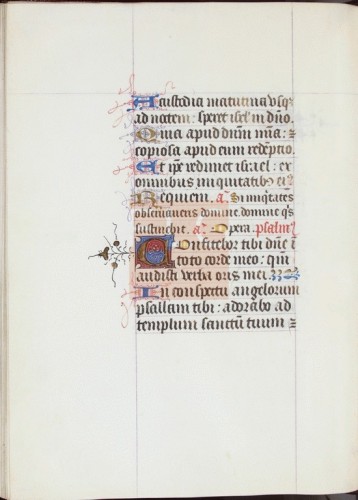 A custodia matutina usq
ad noctem : speret isrl in dño.
Quia apud dñm mia : z
copiosa apud eum redẽptio.
Et ipe redimet israel : ex
omnibus iniquitatib9 ei9.
Requiem. a. Si iniq̃tates
observaveris domine domine q̃s
sustinebit. a. Opera. psalm9
Confitebor tibi dñe ĩ
toto corde meo : qm̃
audisti verba oris mei.
In conspectu angelorum
psallam tibi : adorabo ad
templum sanctũ tuum z